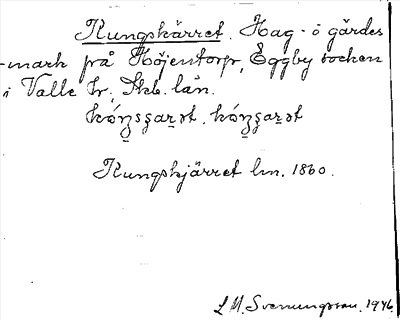 Kungskärret. Hag- o gärdes
-mark på Höjentorp, Eggby socken
i Valle hr, Skb. län.
Kungskjärret lm. 1860.
L M. Svenungsson, 1946